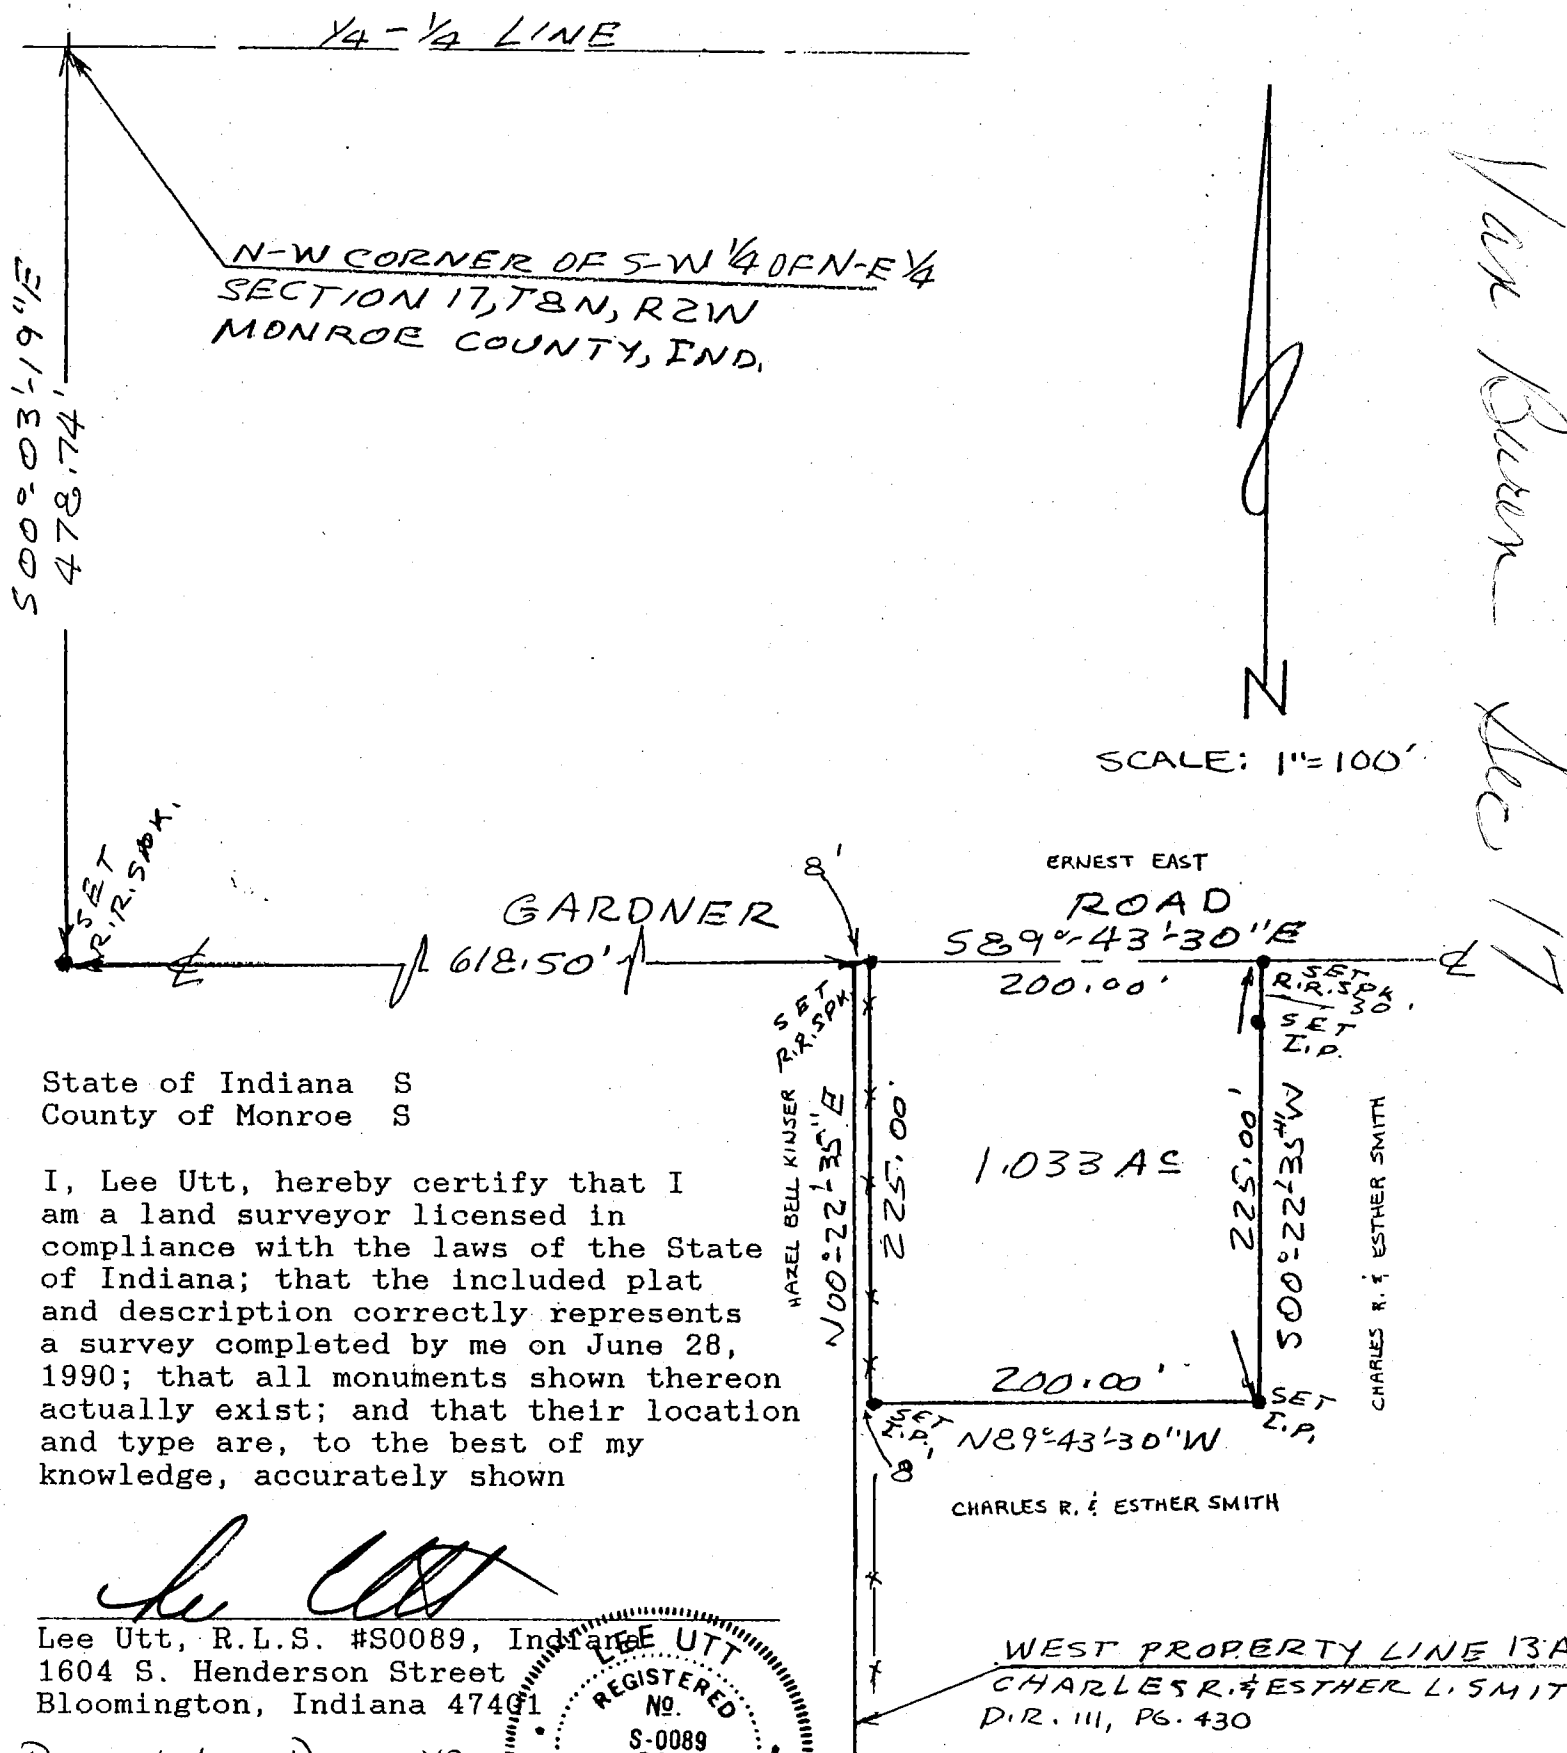 1/4 - 1/4 LINE
N-W CORNER OF S-W 1/4 OF N-E 1/4
SECTION 17, T8N, R2W
MONROE COUNTY, IND.
S00°-03'-19"E
478.74'
Van Buren Sec 17
N
SCALE: 1"=100'
SET
R.R. SPK.
8'
ERNEST EAST
GARDNER ROAD
618.50'
S89°-43'-30"E
200.00'
SET
R.R. SPK
30'
SET
I.P.
SET
R.R. SPK.
HAZEL BELL KINSER
N00°-22'-35"E
225.00'
1.033 AC
225.00'
S00°-22'-35"W
CHARLES R. & ESTHER SMITH
200.00'
SET
I.P.
SET
I.P.
N89°-43'-30"W
8'
CHARLES R. & ESTHER SMITH
State of Indiana S
County of Monroe S
I, Lee Utt, hereby certify that I
am a land surveyor licensed in
compliance with the laws of the State
of Indiana; that the included plat
and description correctly represents
a survey completed by me on June 28,
1990; that all monuments shown thereon
actually exist; and that their location
and type are, to the best of my
knowledge, accurately shown
Lee Utt
Lee Utt, R.L.S. #S0089, Indiana
1604 S. Henderson Street
Bloomington, Indiana 47401
LEE UTT
REGISTERED
No.
S-0089
WEST PROPERTY LINE 13A
CHARLES R. & ESTHER L. SMIT
D.R. 111, PG. 430